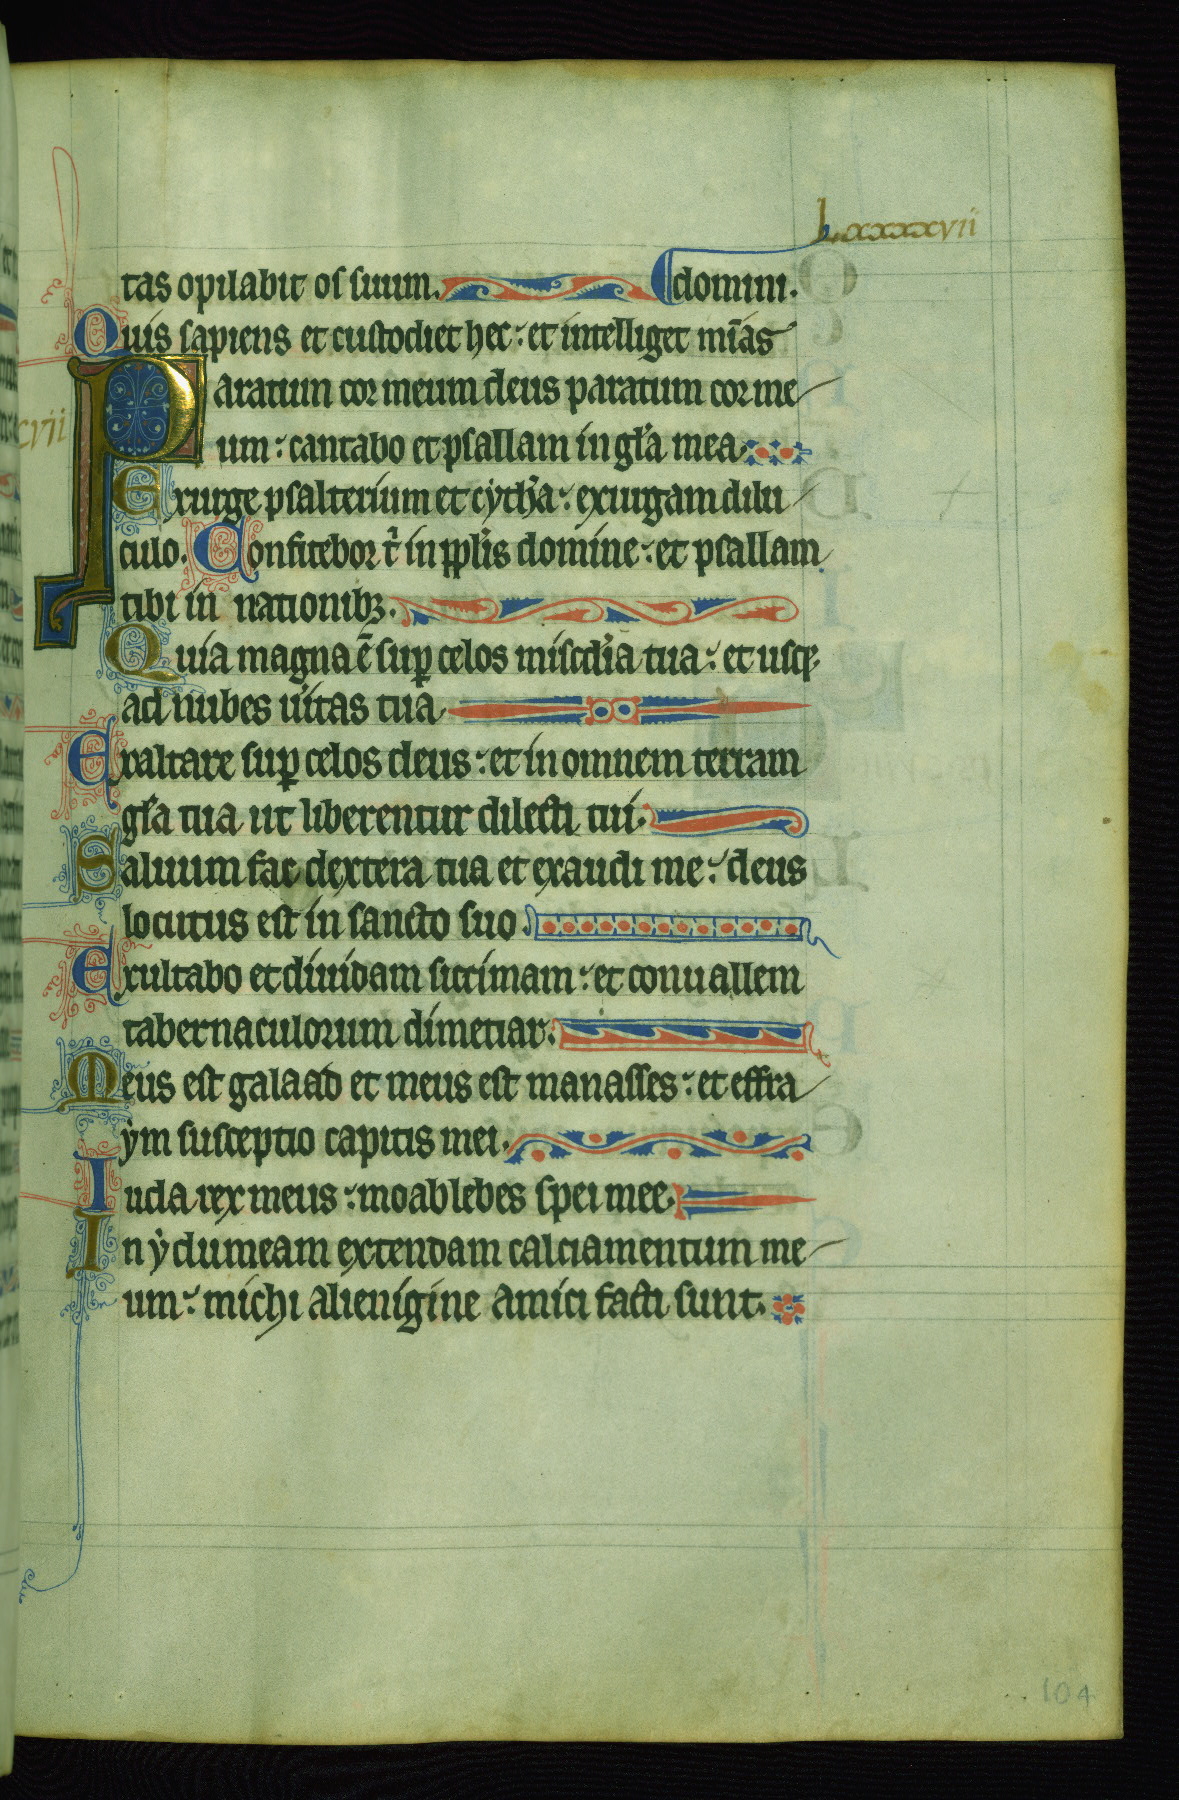 Lxxxxvii
tas opilabit os suum. domini.
Quis sapiens et custodiet hec: et intelliget mīas
cvii
Paratum cor meum deus paratum cor me
um: cantabo et psallam in gła mea
Exurge psalterium et cytħa: exurgam dilu
culo. Confitebor t̄ in pplis domine: et psallam
tibi in nationibꝫ.
Quia magna ē suꝑ celos miscdia tua: et usqꝫ
ad nubes uitas tua
Exaltare suꝑ celos deus: et in omnem terram
gła tua ut liberentur dilecti tui.
Saluum fac dextera tua et exaudi me: deus
locutus est in sancto suo.
Exultabo et diuidam siccimam: et conuallem
tabernaculorum dimetiar.
Meus est galaad et meus est manasses: et effra
ẏm susceptio capitis mei.
Iuda rex meus: moab lebes spei mee.
In ẏdumeam extendam calciamentum me
um: michi alienigine amici facti sunt.
104